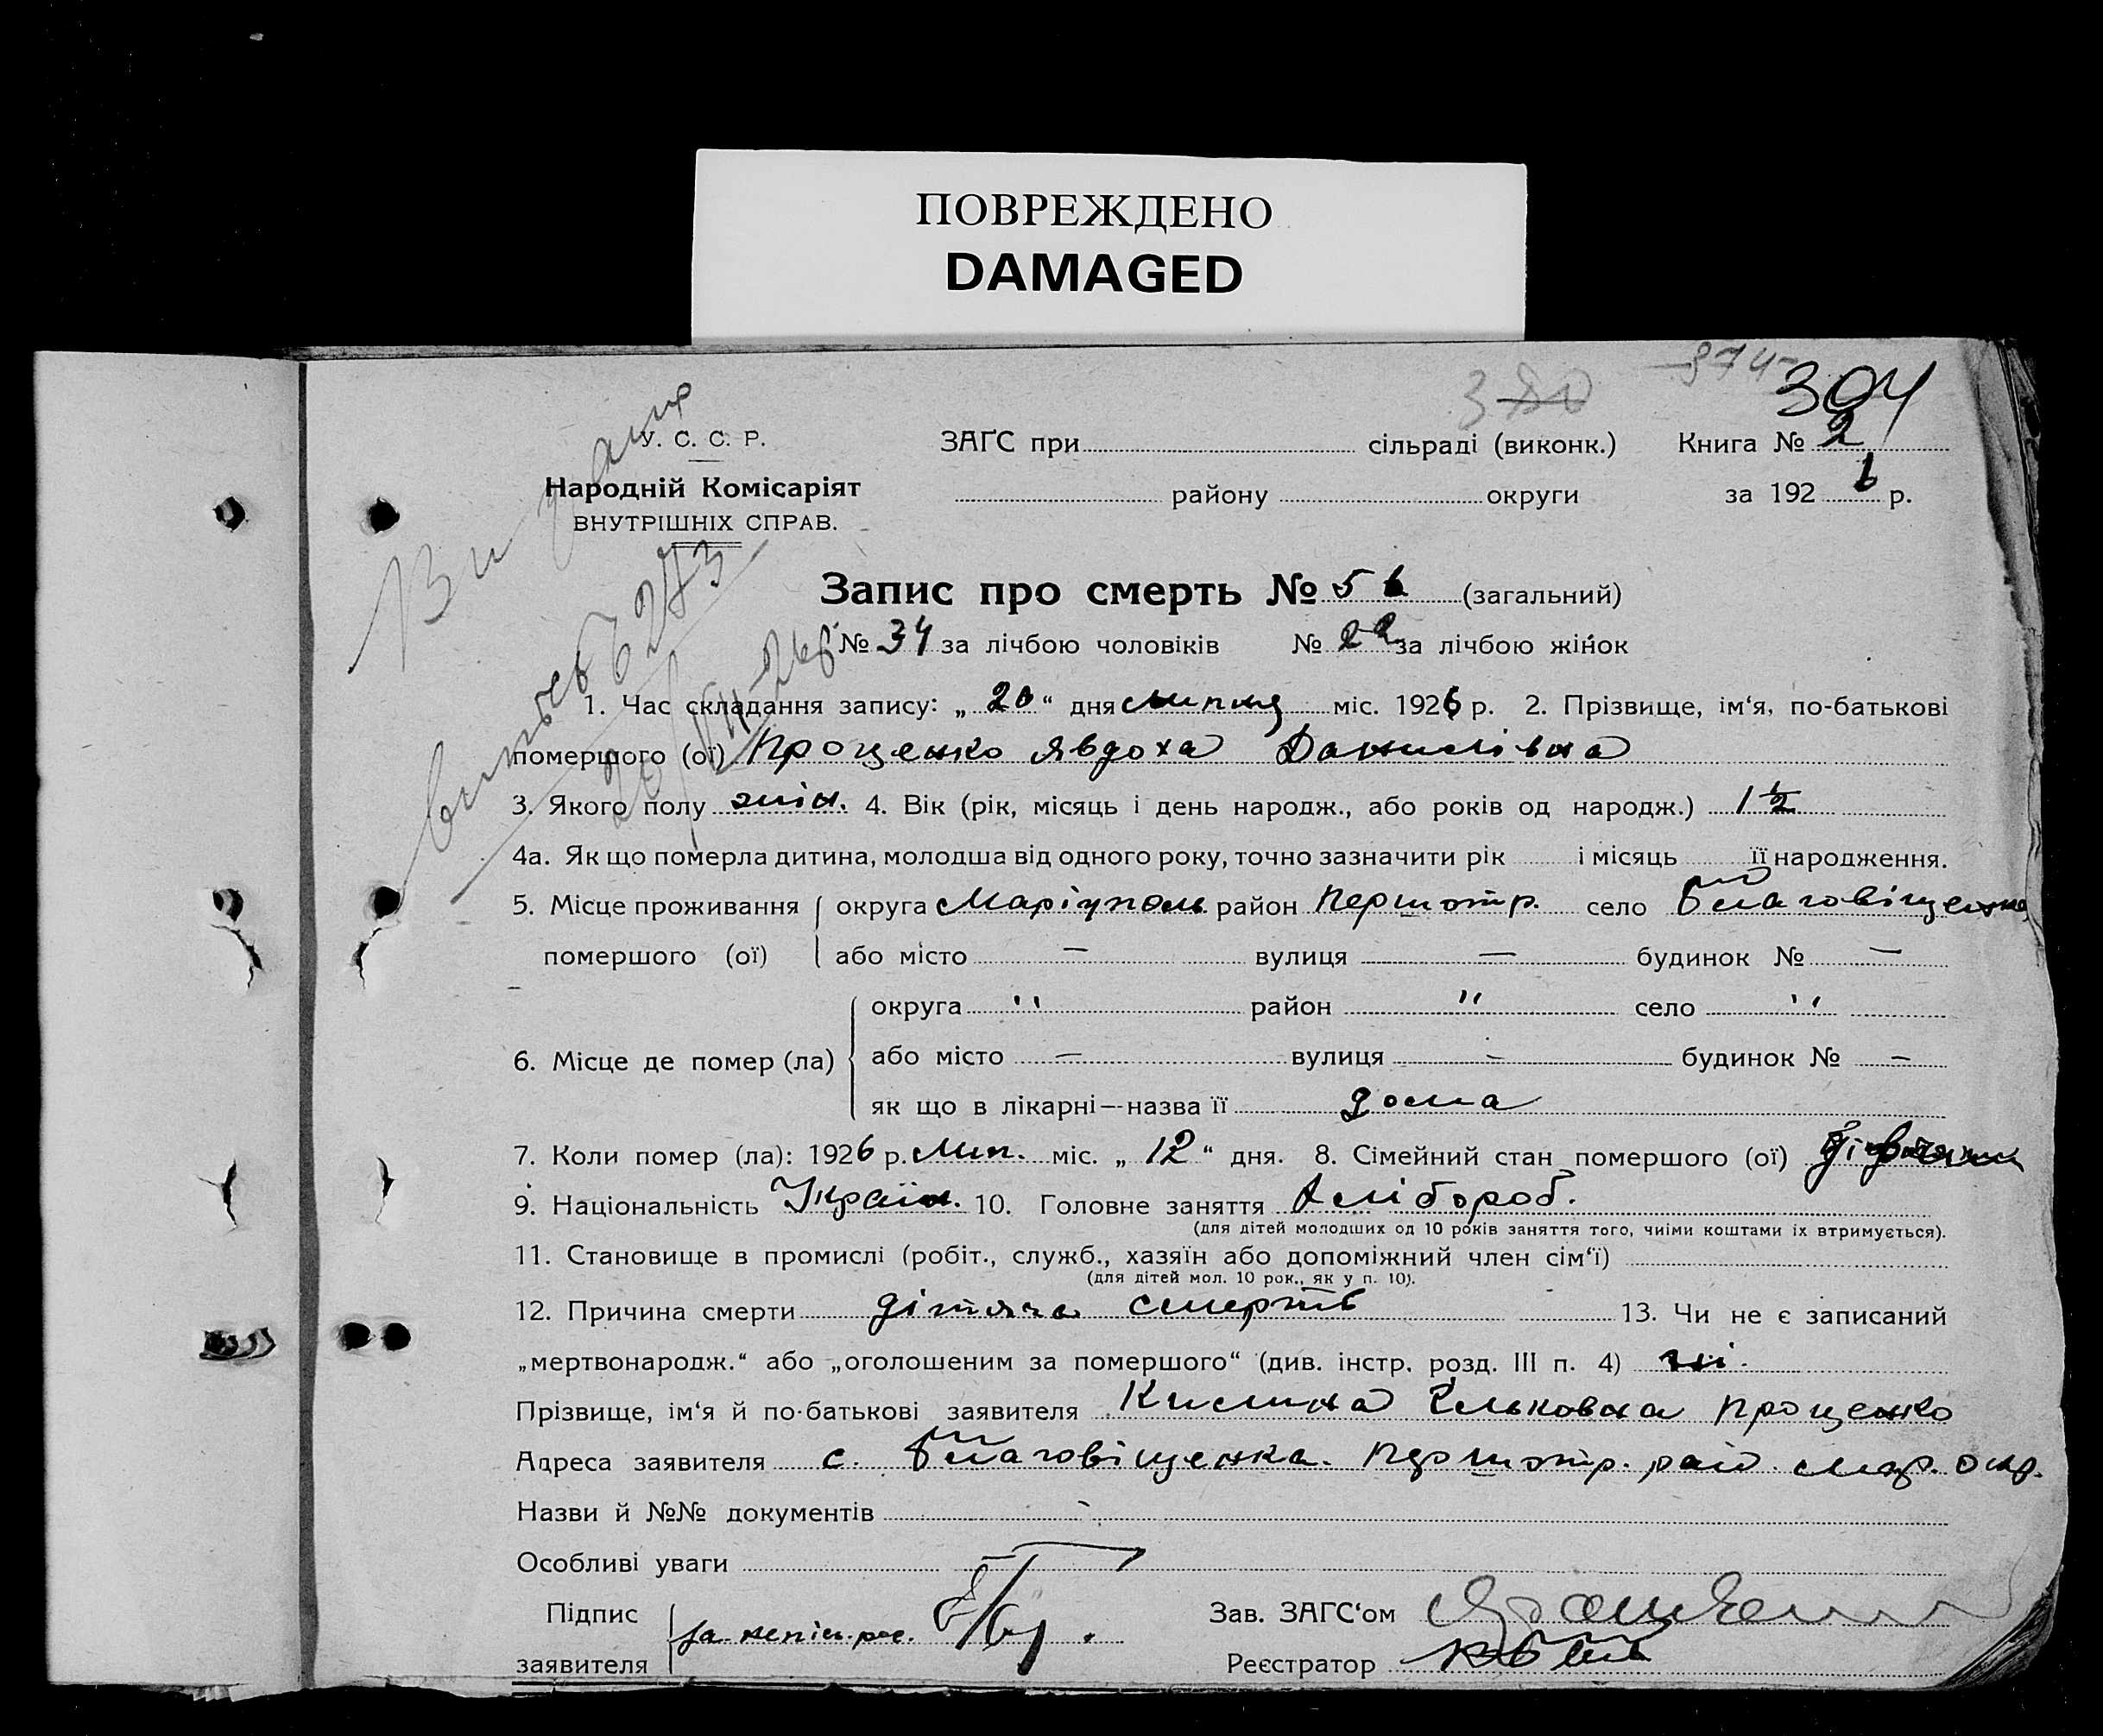 ПОВРЕЖДЕНО
DAMAGED
374
380
304
У. С. С. Р.
ЗАҐС при сільраді (виконк.) Книга № 2
Народній Комісаріят
району округи за 1926 р.
ВНУТРІШНІХ СПРАВ.
Запис про смерть № 56 (загальний)
№ 34 за лічбою чоловіків № 22 за лічбою жінок
1. Час складання запису: „20“ дня липня міс. 1926 р. 2. Прізвище, ім‘я, по-батькові
помершого (ої) Проценко Явдоха Данилівна
3. Якого полу жін. 4. Вік (рік, місяць і день народж., або років од народж.) 1 1/2
4а. Як що померла дитина, молодша від одного року, точно зазначити рік і місяць її народження.
5. Місце проживання округа Маріуполь район Першотр. село Благовіщенка
помершого (ої) або місто — вулиця — будинок № —
округа " район " село "
6. Місце де помер (ла) або місто — вулиця — будинок № —
як що в лікарні—назва її дома
7. Коли помер (ла): 1926 р. Лип. міс. „12“ дня. 8. Сімейний стан помершого (ої)
9. Національність Україн. 10. Головне заняття Хлібороб.
(для дітей молодших од 10 років заняття того, чиїми коштами їх втримується).
11. Становище в промислі (робіт., служб., хазяїн або допоміжний член сім‘ї)
(для дітей мол. 10 рок., як у п. 10).
12. Причина смерти дітяча смерть 13. Чи не є записаний
„мертвонародж.“ або „оголошеним за помершого“ (див. інстр. розд. III п. 4) ні.
Прізвище, ім‘я й по-батькові заявителя Килина Проценко
Адреса заявителя с. Благовіщенка. Першотр. рай. Мар. окр.
Назви й №№ документів
Особливі уваги
Підпис Зав. ЗАГС‘ом
за непись.
заявителя Реєстратор